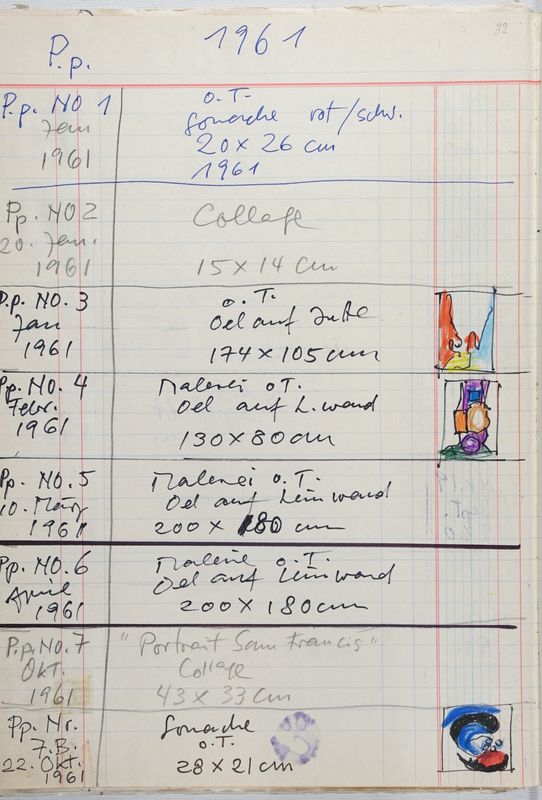 32
P.p. 1961
P.p. NO 1 o.T.
Jan Gouache rot/schw.
1961 20 x 26 cm
1961
Pp. NO 2 Collage
20. Jan.
1961 15 x 14 cm
P.p. NO. 3 o.T.
Jan Oel auf Jute
1961 174 x 105 cm
Pp. NO. 4 Malerei oT.
Febr. Oel auf L.wand
1961 130 x 80 cm
Pp. NO. 5 Malerei o.T.
10. März Oel auf Leinwand
1961 200 x 180 cm
Pp. NO. 6 Malerei o.T.
April Oel auf Leinwand
1961 200 x 180 cm
P.p. No. 7 "Portrait Sam Francis"
Okt. Collage
1961 43 x 33 cm
Pp. Nr. Gouache
7.B. o.T.
22. Okt. 28 x 21 cm
1961